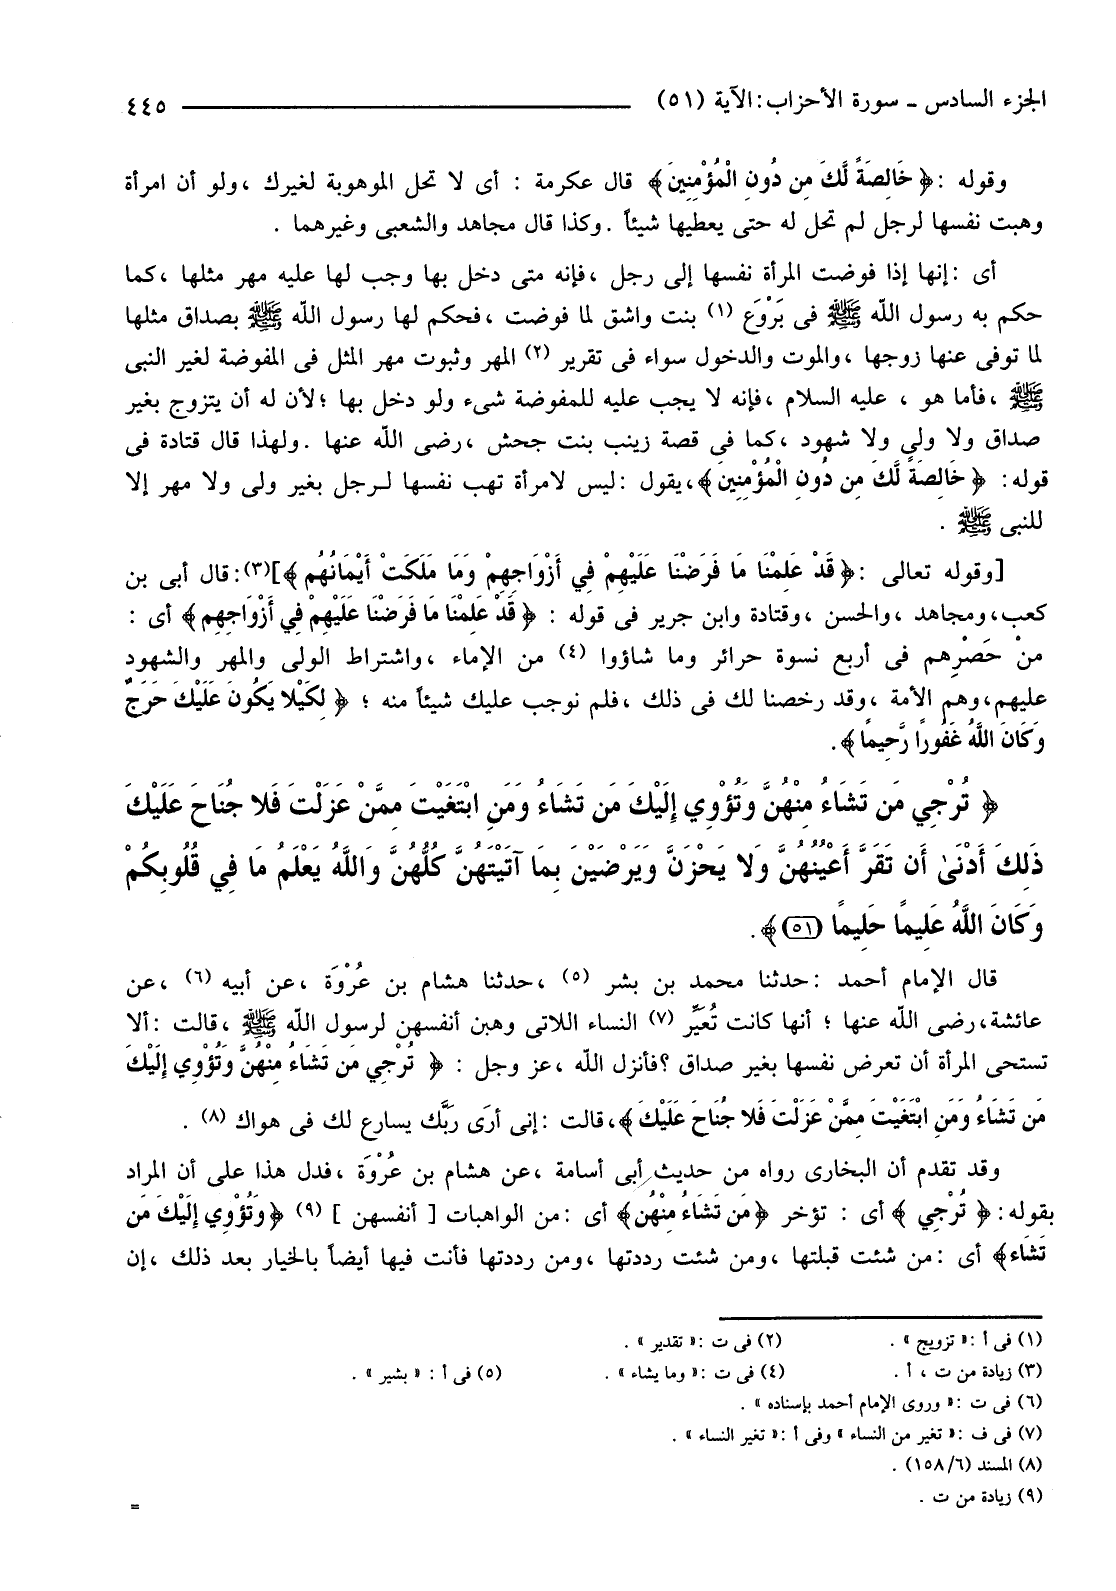 الجزء السادس - سورة الأحزاب: الآية (٥١) ٤٤٥
وقوله : ﴿ خَالِصَةً لَّكَ مِن دُونِ الْمُؤْمِنِينَ ﴾ قال عكرمة : أى لا تحل الموهوبة لغيرك ، ولو أن امرأة
وهبت نفسها لرجل لم تحل له حتى يعطيها شيئاً . وكذا قال مجاهد والشعبى وغيرهما .
أى : إنها إذا فوضت المرأة نفسها إلى رجل ، فإنه متى دخل بها وجب لها عليه مهر مثلها ، كما
حكم به رسول الله ﷺ فى بَرْوَع (١) بنت واشق لما فوضت ، فحكم لها رسول الله ﷺ بصداق مثلها
لما توفى عنها زوجها ، والموت والدخول سواء فى تقرير (٢) المهر وثبوت مهر المثل فى المفوضة لغير النبى
ﷺ ، فأما هو ، عليه السلام ، فإنه لا يجب عليه للمفوضة شىء ولو دخل بها ؛ لأن له أن يتزوج بغير
صداق ولا ولى ولا شهود ، كما فى قصة زينب بنت جحش ، رضى الله عنها . ولهذا قال قتادة فى
قوله: ﴿ خَالِصَةً لَّكَ مِن دُونِ الْمُؤْمِنِينَ ﴾، يقول : ليس لامرأة تهب نفسها لـرجل بغير ولى ولا مهر إلا
للنبى ﷺ .
[وقوله تعالى : ﴿ قَدْ عَلِمْنَا مَا فَرَضْنَا عَلَيْهِمْ فِي أَزْوَاجِهِمْ وَمَا مَلَكَتْ أَيْمَانُهُم ﴾](٣): قال أبى بن
كعب، ومجاهد ، والحسن ، وقتادة وابن جرير فى قوله : ﴿ قَدْ عَلِمْنَا مَا فَرَضْنَا عَلَيْهِمْ فِي أَزْوَاجِهِم ﴾ أى :
منْ حَصْرِهم فى أربع نسوة حرائر وما شاؤوا (٤) من الإماء ، واشتراط الولى والمهر والشهود
عليهم، وهم الأمة ، وقد رخصنا لك فى ذلك ، فلم نوجب عليك شيئاً منه ؛ ﴿ لِكَيْلا يَكُونَ عَلَيْكَ حَرَجٌ
وَكَانَ اللَّهُ غَفُورًا رَّحِيمًا ﴾.
﴿ تُرْجِي مَن تَشَاءُ مِنْهُنَّ وَتُؤْوِي إِلَيْكَ مَن تَشَاءُ وَمَنِ ابْتَغَيْتَ مِمَّنْ عَزَلْتَ فَلا جُنَاحَ عَلَيْكَ
ذَلِكَ أَدْنَىٰ أَن تَقَرَّ أَعْيُنُهُنَّ وَلا يَحْزَنَّ وَيَرْضَيْنَ بِمَا آتَيْتَهُنَّ كُلُّهُنَّ وَاللَّهُ يَعْلَمُ مَا فِي قُلُوبِكُمْ
وَكَانَ اللَّهُ عَلِيمًا حَلِيمًا (٥١) ﴾.
قال الإمام أحمد : حدثنا محمد بن بشر (٥) ، حدثنا هشام بن عُرْوَة ، عن أبيه (٦) ، عن
عائشة، رضى الله عنها ؛ أنها كانت تُعَيِّر (٧) النساء اللاتى وهبن أنفسهن لرسول الله ﷺ ، قالت : ألا
تستحى المرأة أن تعرض نفسها بغير صداق ؟ فأنزل الله ، عز وجل : ﴿ تُرْجِي مَن تَشَاءُ مِنْهُنَّ وَتُؤْوِي إِلَيْكَ
مَن تَشَاءُ وَمَنِ ابْتَغَيْتَ مِمَّنْ عَزَلْتَ فَلا جُنَاحَ عَلَيْكَ ﴾، قالت : إنى أرَى رَبَّك يسارع لك فى هواك (٨) .
وقد تقدم أن البخارى رواه من حديث أبى أسامة ، عن هشام بن عُرْوَة ، فدل هذا على أن المراد
بقوله: ﴿ تُرْجِي ﴾ أى : تؤخر ﴿ مَن تَشَاءُ مِنْهُن ﴾ أى : من الواهبات [ أنفسهن ] (٩) ﴿ وَتُؤْوِي إِلَيْكَ مَن
تَشَاء ﴾ أى : من شئت قبلتها ، ومن شئت رددتها ، ومن رددتها فأنت فيها أيضاً بالخيار بعد ذلك ، إن
(١) فى أ : « تزويج » . (٢) فى ت : « تقدير » .
(٣) زيادة من ت ، أ . (٤) فى ت : « وما يشاء » . (٥) فى أ : « بشير » .
(٦) فى ت : « وروى الإمام أحمد بإسناده » .
(٧) فى ف : « تغير من النساء » وفى أ : « تغير النساء » .
(٨) المسند (١٥٨/٦) .
(٩) زيادة من ت . =